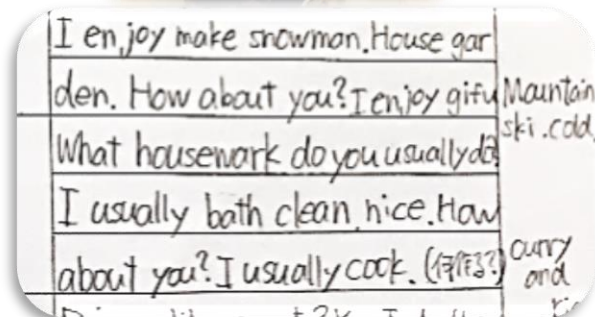 I enjoy make snowman. House gar
den. How about you? I enjoy gifu Mountain
ski. cold.
What housework do you usually do?
I usually bath clean. nice. How
about you? I usually cook. (何作る?) curry
and